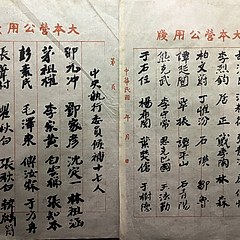 大本營公用牋
李烈鈞 居正 戴季陶 林森
柏文蔚 丁惟汾 石瑛 鄒魯
譚延闓 覃振 譚平山 石青陽
熊克武 李守常 恩克巴圖 王法勤
于右任 楊希閔 葉楚傖 于樹德
中華民國 年 月 日
大本營公用牋
中央執行委員候補十七人
邵元冲 鄧家彥 沈定一 林祖涵
茅祖權 李宗黃 白雲梯 張知本
彭素民 毛澤東 傅汝霖 于方舟
張葦村 瞿秋白 張秋白 韓麟符